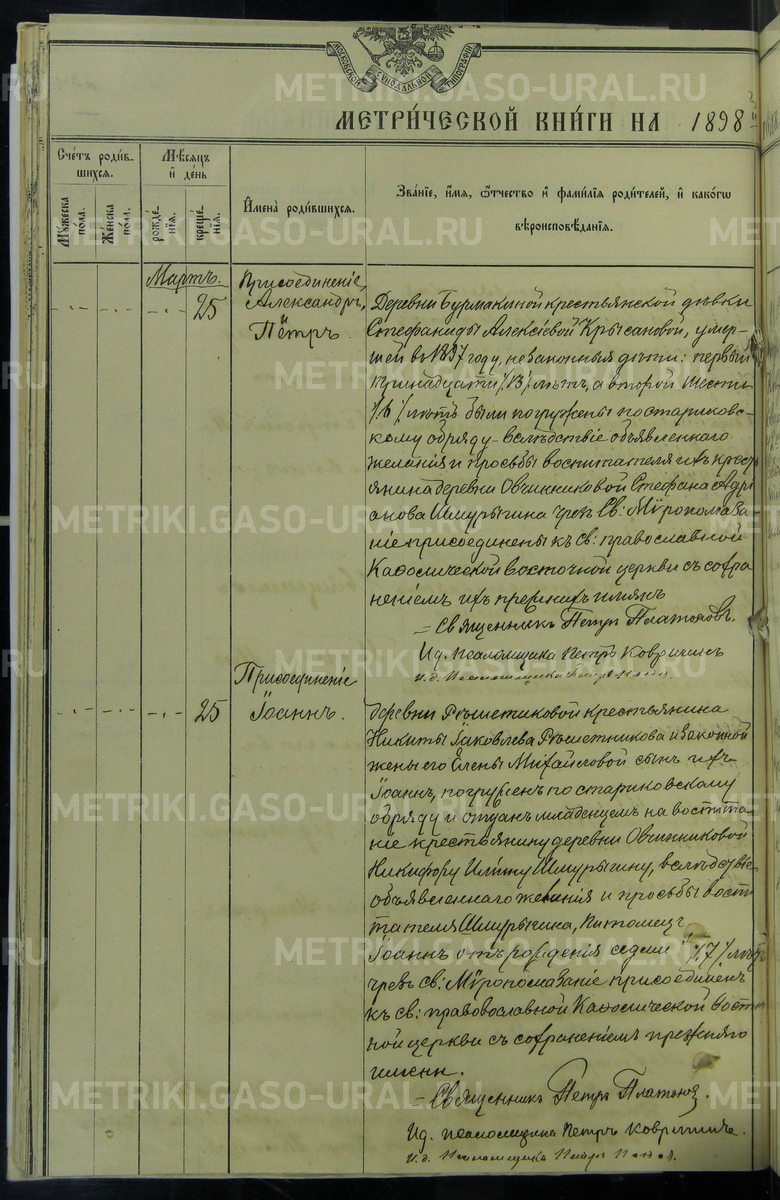 МОСКОВСКОЙ СѴНОДАЛЬНОЙ ТИПОГРАФІИ
МЕТРИ́ЧЕСКОЙ КНИ́ГИ НА 1898
Сче́тъ роди́в-
шихся.
Мꙋ́жеска по́ла.
Же́нска по́ла.
М҄ѣсяцъ
и҆ де́нь
рожде́-
нія.
креще́-
нія.
И҆мена̀ роди́вшихся.
Зва́ніе, и҆́мя, ѻ҆́тчество и҆ фами́лія роди́телей, и҆ како́гѡ
вѣроисповѣ́данія.
Мартъ.
Присоединеніе
Александръ,
25
Пётръ
Деревни Бурмакиной крестьянской дѣвки
Стефаниды Алексіевой Крысановой, умер-
шей въ 1897 году, незаконныя дѣти: первый
тринадцати /13/ лѣтъ, а второй шести
/6/ лѣтъ были погружены по стариковс-
кому обряду - вслѣдствіе объявленнаго
желанія и просьбы воспитателя ихъ крест
янина деревни Овчинниковой Стефана Адрі
анова Шмурыгина чрезъ Св: Мѵропомаза-
ніе присоединены къ св: православной
Каѳолической восточной церкви съ сохра
неніемъ ихъ прежнихъ имянъ
- Священникъ Петръ Платоновъ.
Ид. псаломщика Петръ Ковригинъ
и. д. Псаломщика Петръ Попов
Присоединеніе
25
Іоаннъ.
деревни Рѣшетиковой крестьянина
Никиты Іаковлева Рѣшетникова и законной
жены его Елены Михайловой сынъ ихъ
Іоаннъ, погруженъ по стариковскому
обряду и отданъ младенцемъ на воспита
ніе крестьянину деревни Овчинниковой
Никифору Шмурыгину, вслѣдствіе
объявленнаго желанія и просьбы воспи
тателя Шмурыгина, питомецъ
Іоаннъ отъ рожденія седми /7/ лѣтъ
чрезъ св: Мѵропомазаніе присоединенъ
къ св: правовославной Каѳолической восточ
ной церкви съ сохраненіемъ прежняго
имени.
- Священникъ Петръ Платоновъ.
Ид. псаломщика Петръ Ковригинъ.
и. д. Псаломщика Петръ Попов.
METRIKI.GASO-URAL.RU